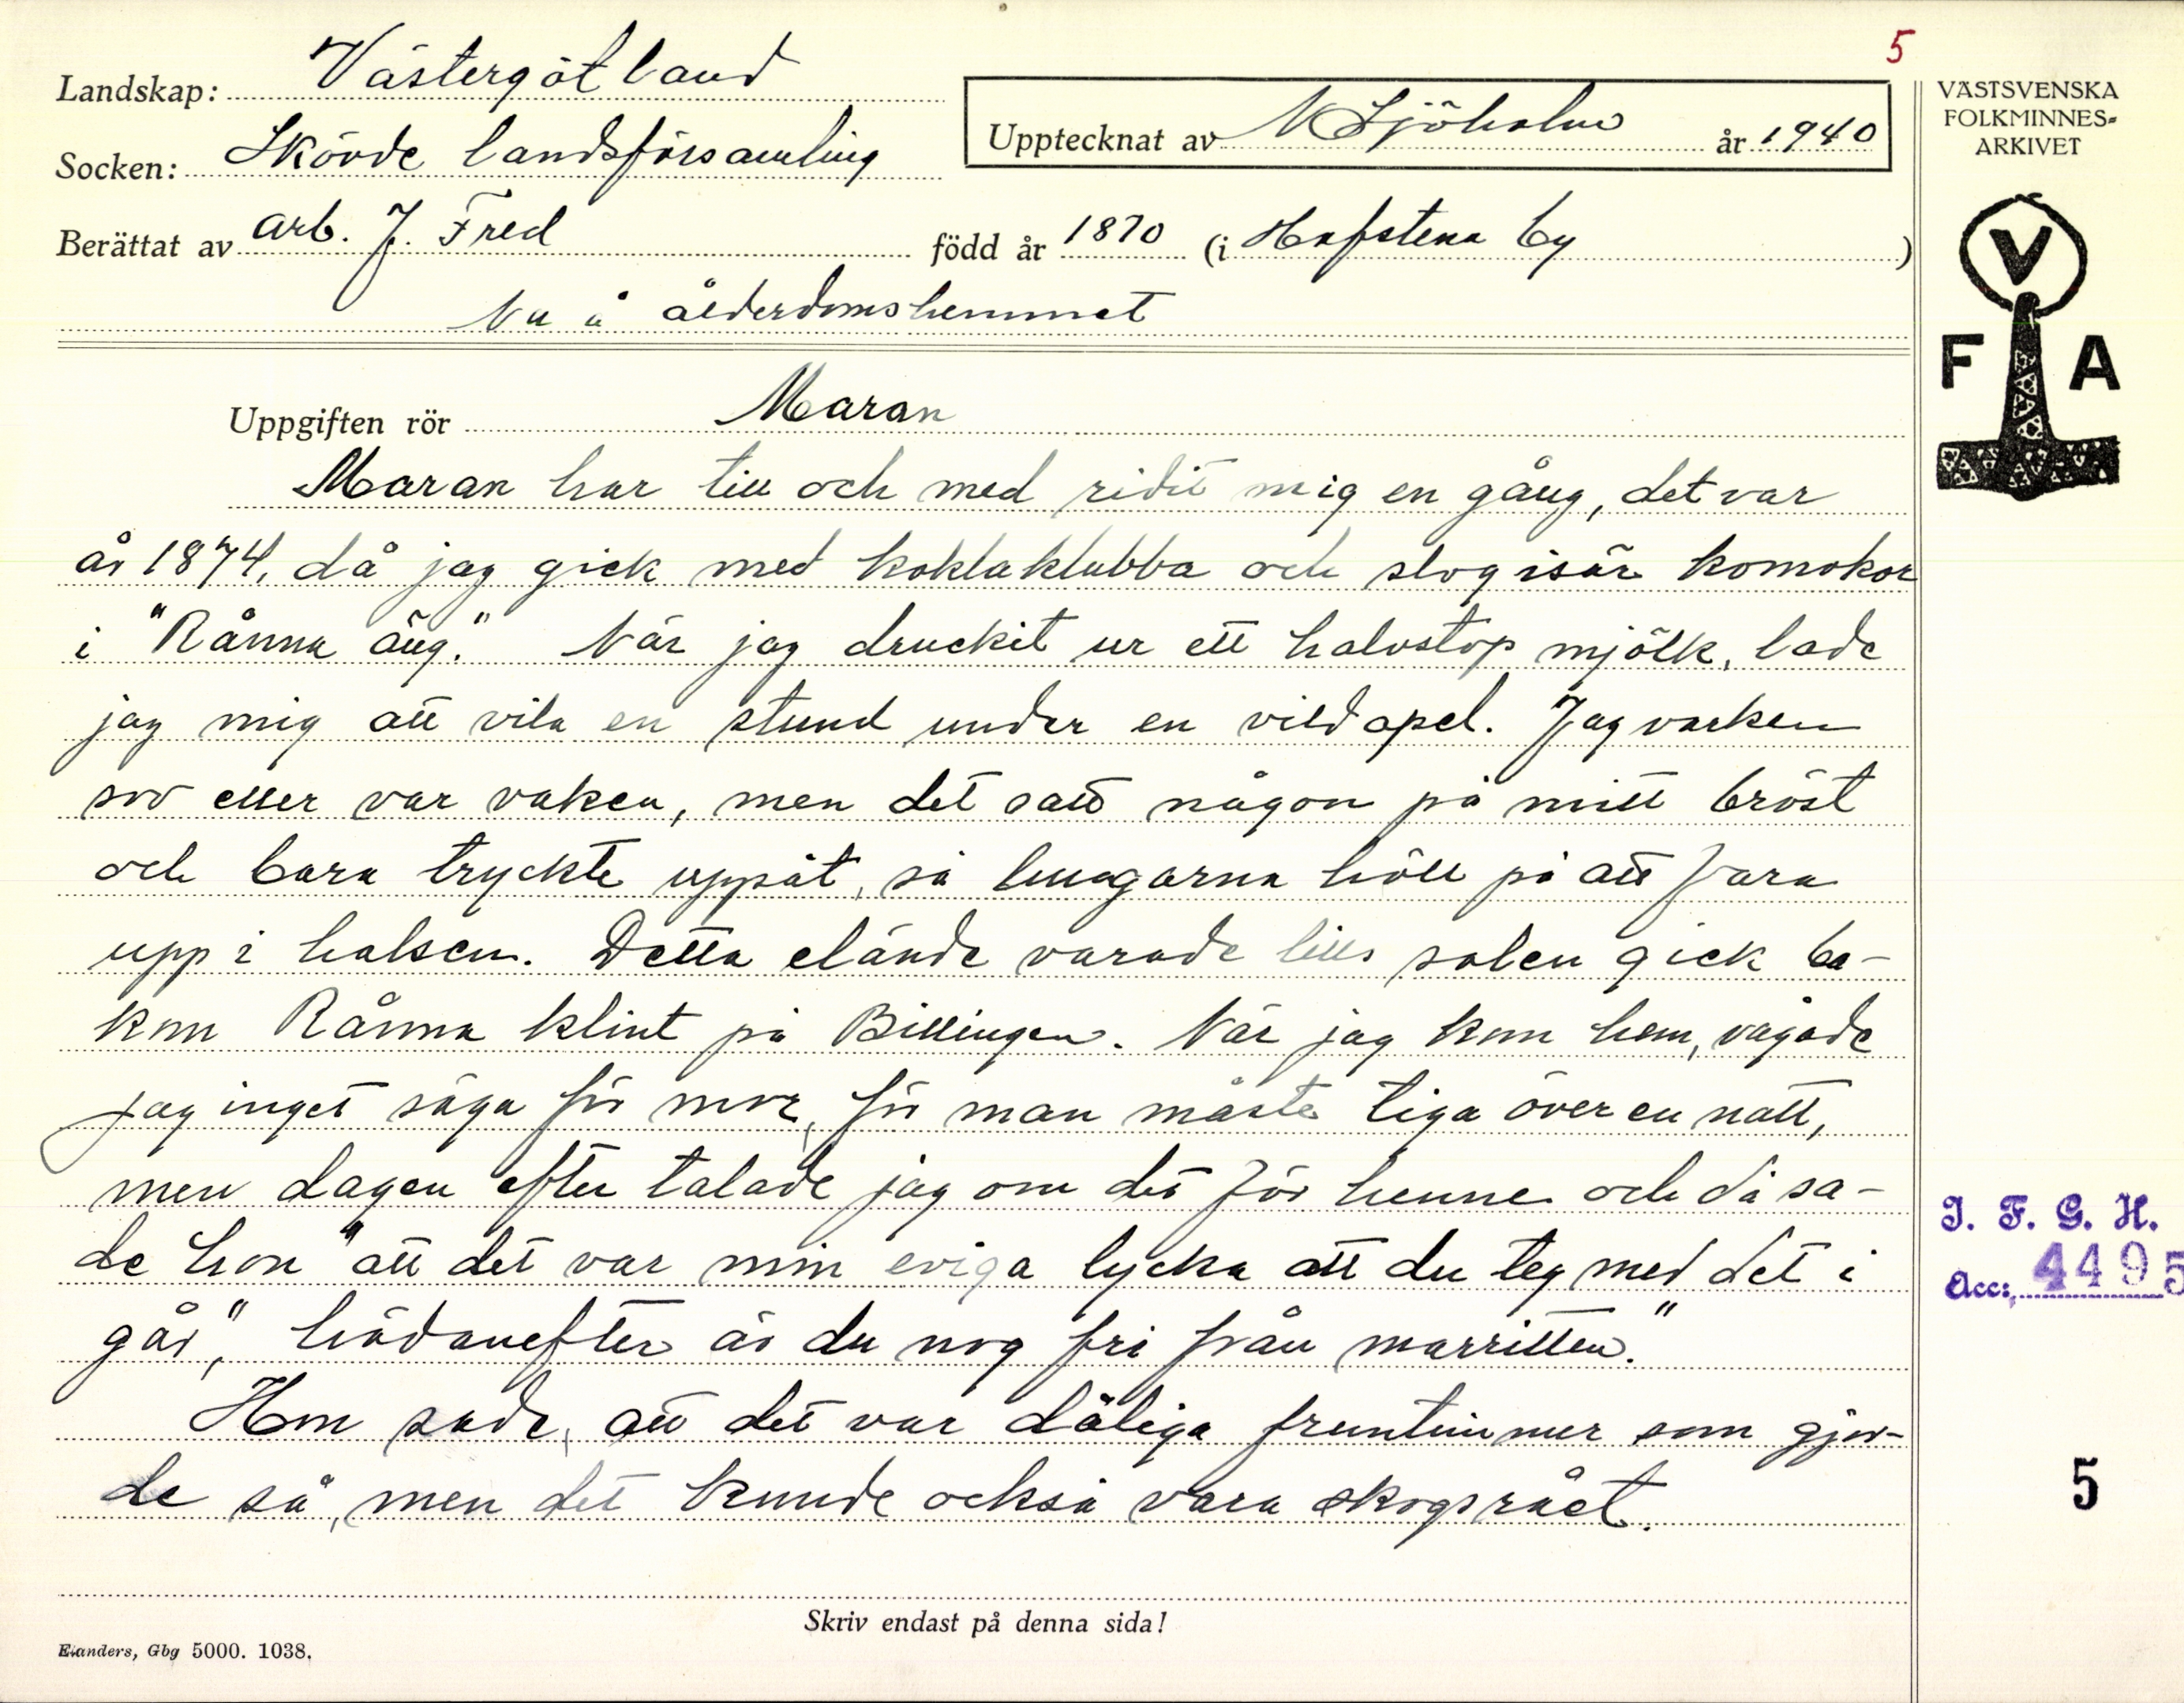 5
Landskap: Västergötland
VÄSTSVENSKA
FOLKMINNES-
ARKIVET
Upptecknat av N Sjöholm år 1940
Socken: Skövde landsförsamling
Berättat av arb. J. Fred född år 1870 (i Hafstena by )
Nu å ålderdomshemmet
V
F A
Uppgiften rör Maran
Maran har till och med ridit mig en gång, det var
år 1874, då jag gick med koklaklubba och slog isär komokor
i "Rånna äng." När jag druckit ur ett halvstop mjölk, lade
jag mig att vila en stund under en vildapel. Jag varken
sov eller var vaken, men det satt någon på mitt bröst
och bara tryckte uppåt, så lungarna höll på att fara
upp i halsen. Detta elände varade tills solen gick ba-
kom Rånna klint på Billingen. När jag kom hem, vågade
jag inget säga för mor, för man måste tiga över en natt,
men dagen efter talade jag om det för henne och då sa-
de hon "att det var min eviga lycka att du teg med det i
går," hädanefter är du nog fri från marritten."
Hon sade, att det var dåliga fruntimmer som gjor-
de så, men det kunde också vara skogsrået.
I. F. G. H.
Acc: 4495
5
Skriv endast på denna sida!
Elanders, Gbg 5000. 1038.